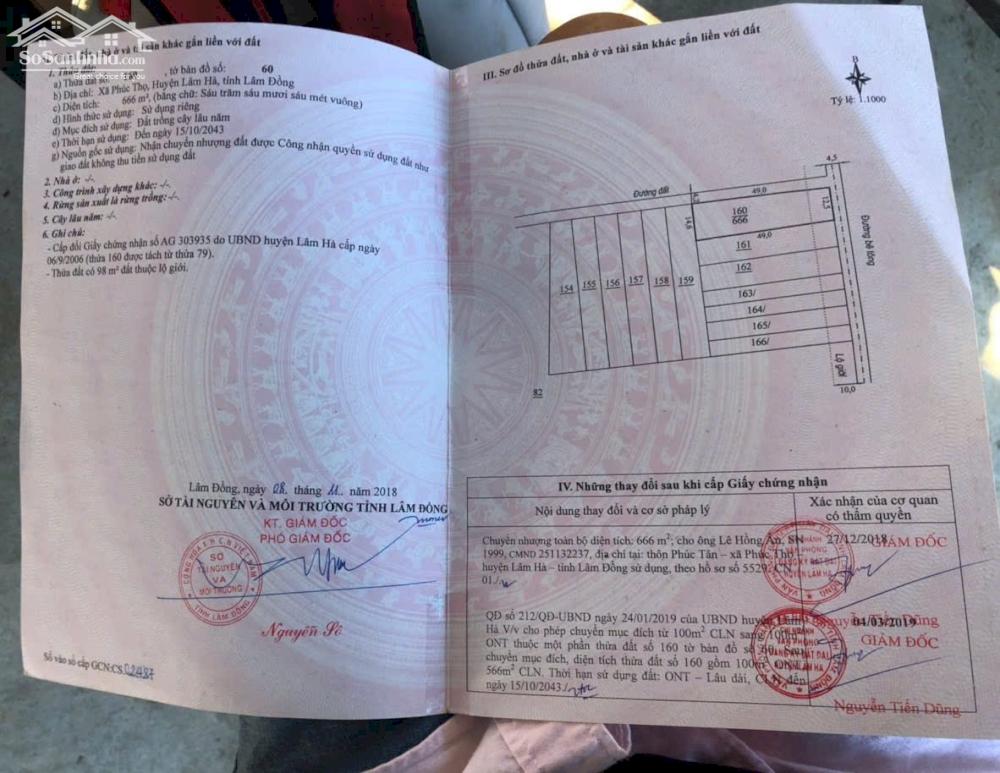 SoSanhnha.com
Great choice for you
nhà ở và tài sản khác gắn liền với đất
1. Thửa đất
a) Thửa đất số: , tờ bản đồ số: 60
b) Địa chỉ: Xã Phúc Thọ, Huyện Lâm Hà, tỉnh Lâm Đồng
c) Diện tích: 666 m², (bằng chữ: Sáu trăm sáu mươi sáu mét vuông)
d) Hình thức sử dụng: Sử dụng riêng
đ) Mục đích sử dụng: Đất trồng cây lâu năm
e) Thời hạn sử dụng: Đến ngày 15/10/2043
g) Nguồn gốc sử dụng: Nhận chuyển nhượng đất được Công nhận quyền sử dụng đất như
giao đất không thu tiền sử dụng đất
2. Nhà ở: -/-
3. Công trình xây dựng khác: -/-
4. Rừng sản xuất là rừng trồng: -/-
5. Cây lâu năm: -/-
6. Ghi chú:
- Cấp đổi Giấy chứng nhận số AG 303935 do UBND huyện Lâm Hà cấp ngày
06/9/2006 (thửa 160 được tách từ thửa 79).
- Thửa đất có 98 m² đất thuộc lộ giới.
Lâm Đồng, ngày 08 tháng 11 năm 2018
SỞ TÀI NGUYÊN VÀ MÔI TRƯỜNG TỈNH LÂM ĐỒNG
KT. GIÁM ĐỐC
PHÓ GIÁM ĐỐC
SỞ
TÀI NGUYÊN
VÀ
MÔI TRƯỜNG
TỈNH LÂM ĐỒNG
Nguyễn Sô
Số vào sổ cấp GCN:CS.02487
III. Sơ đồ thửa đất, nhà ở và tài sản khác gắn liền với đất
B
Tỷ lệ: 1:1000
4,5
Đường đất
49,0
12,5
14,6
160
666
49,0
161
162
163/
164/
165/
166/
154
155
156
157
158
159
Đường bê tông
Lộ giới
10,0
82
IV. Những thay đổi sau khi cấp Giấy chứng nhận
Nội dung thay đổi và cơ sở pháp lý
Xác nhận của cơ quan
có thẩm quyền
Chuyển nhượng toàn bộ diện tích: 666 m²; cho ông Lê Hồng Ân, SN
1999, CMND 251132237, địa chỉ tại: thôn Phúc Tân – xã Phúc Thọ –
huyện Lâm Hà – tỉnh Lâm Đồng sử dụng, theo hồ sơ số 5529. CN
01./
27/12/2018
GIÁM ĐỐC
QĐ số 212/QĐ-UBND ngày 24/01/2019 của UBND huyện Lâm
Hà V/v cho phép chuyển mục đích từ 100m² CLN sang 100m²
ONT thuộc một phần thửa đất số 160 tờ bản đồ số 60. Sau
chuyển mục đích, diện tích thửa đất số 160 gồm 100m² ONT
566m² CLN. Thời hạn sử dụng đất: ONT – Lâu dài, CLN đến
ngày 15/10/2043./
Nguyễn Tiến Dũng
04/03/2019
GIÁM ĐỐC
Nguyễn Tiến Dũng